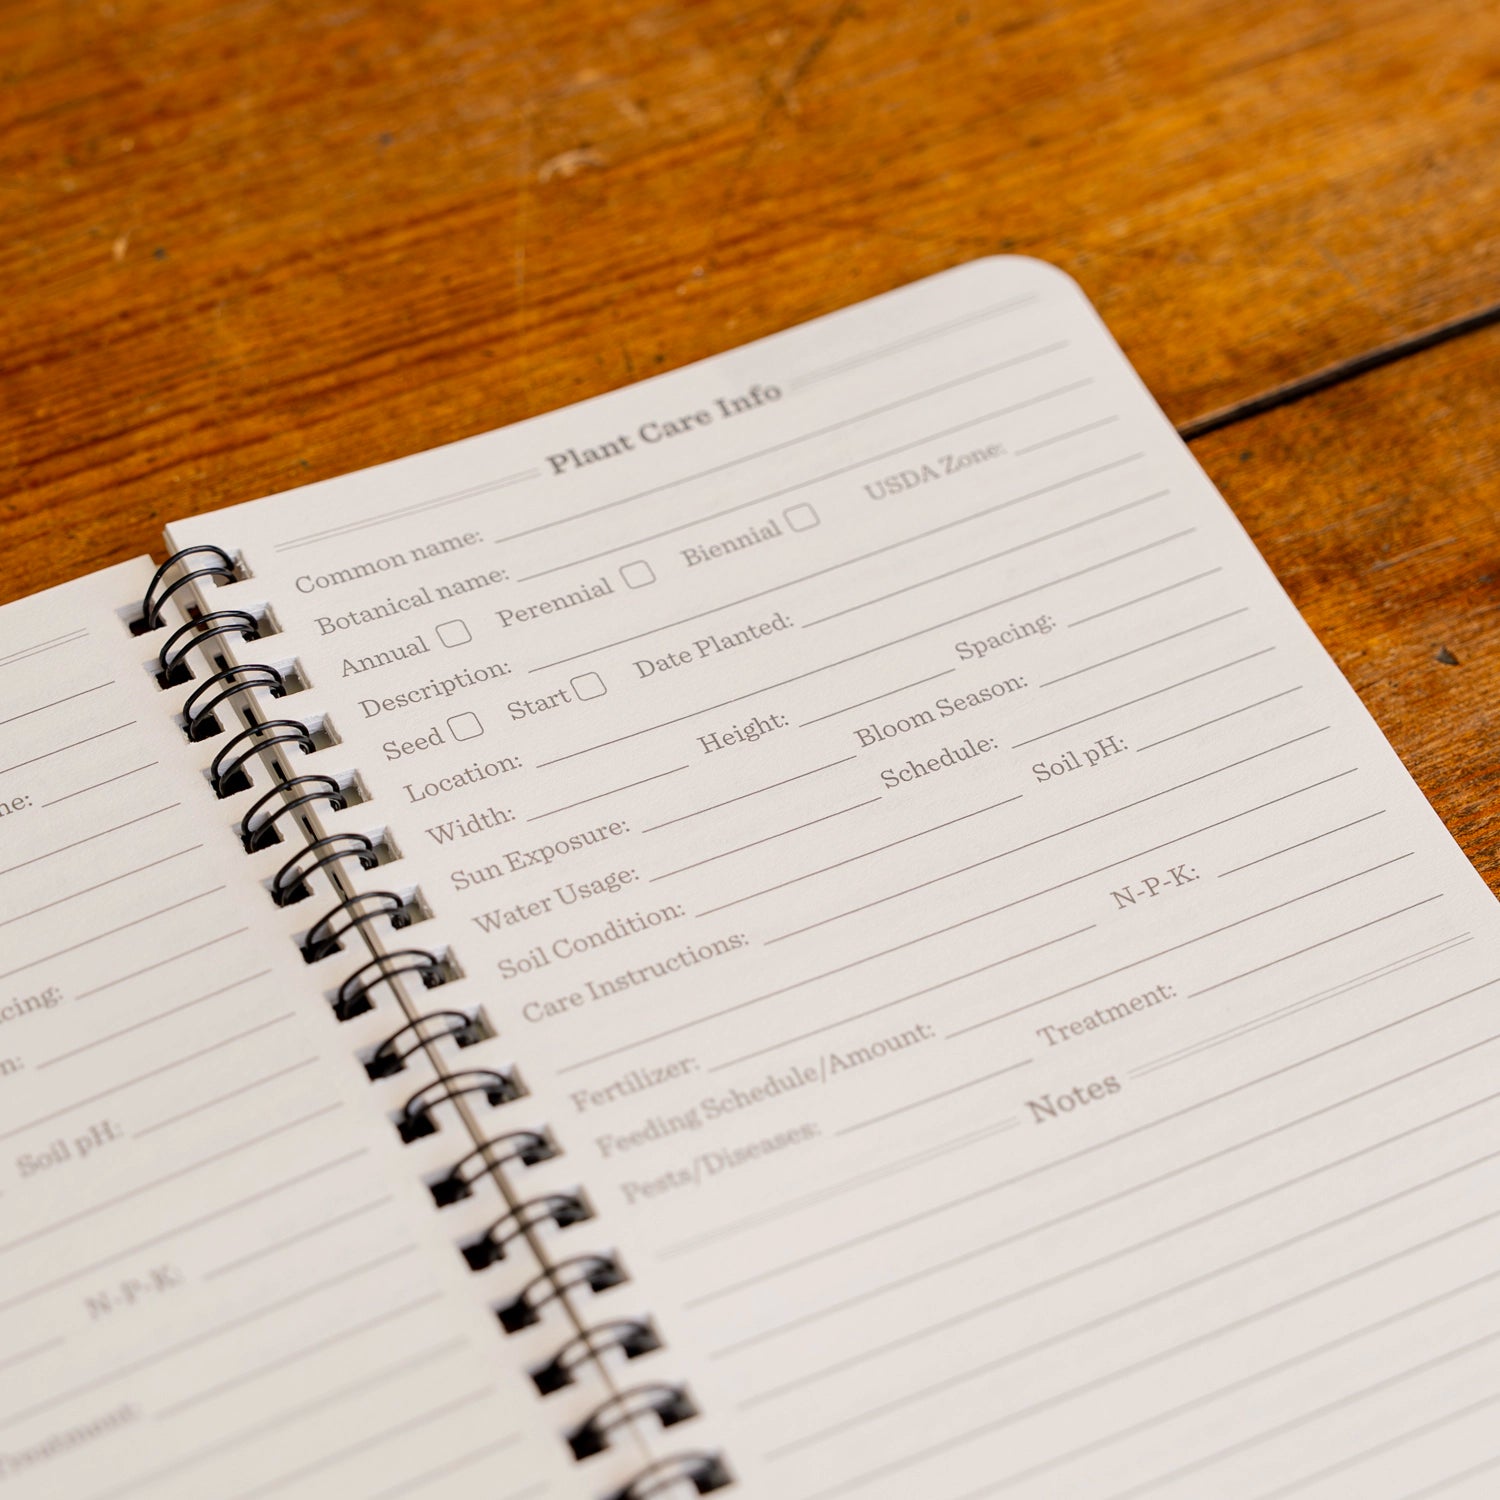 Plant Care Info
Common name:
Botanical name:
Annual Perennial Biennial USDA Zone:
Description:
Seed Start Date Planted:
Location:
Width: Height: Spacing:
Sun Exposure: Bloom Season:
Water Usage: Schedule:
Soil Condition: Soil pH:
Care Instructions:
Fertilizer: N-P-K:
Feeding Schedule/Amount:
Pests/Diseases: Treatment:
Notes
Soil pH:
N-P-K:
Treatment: